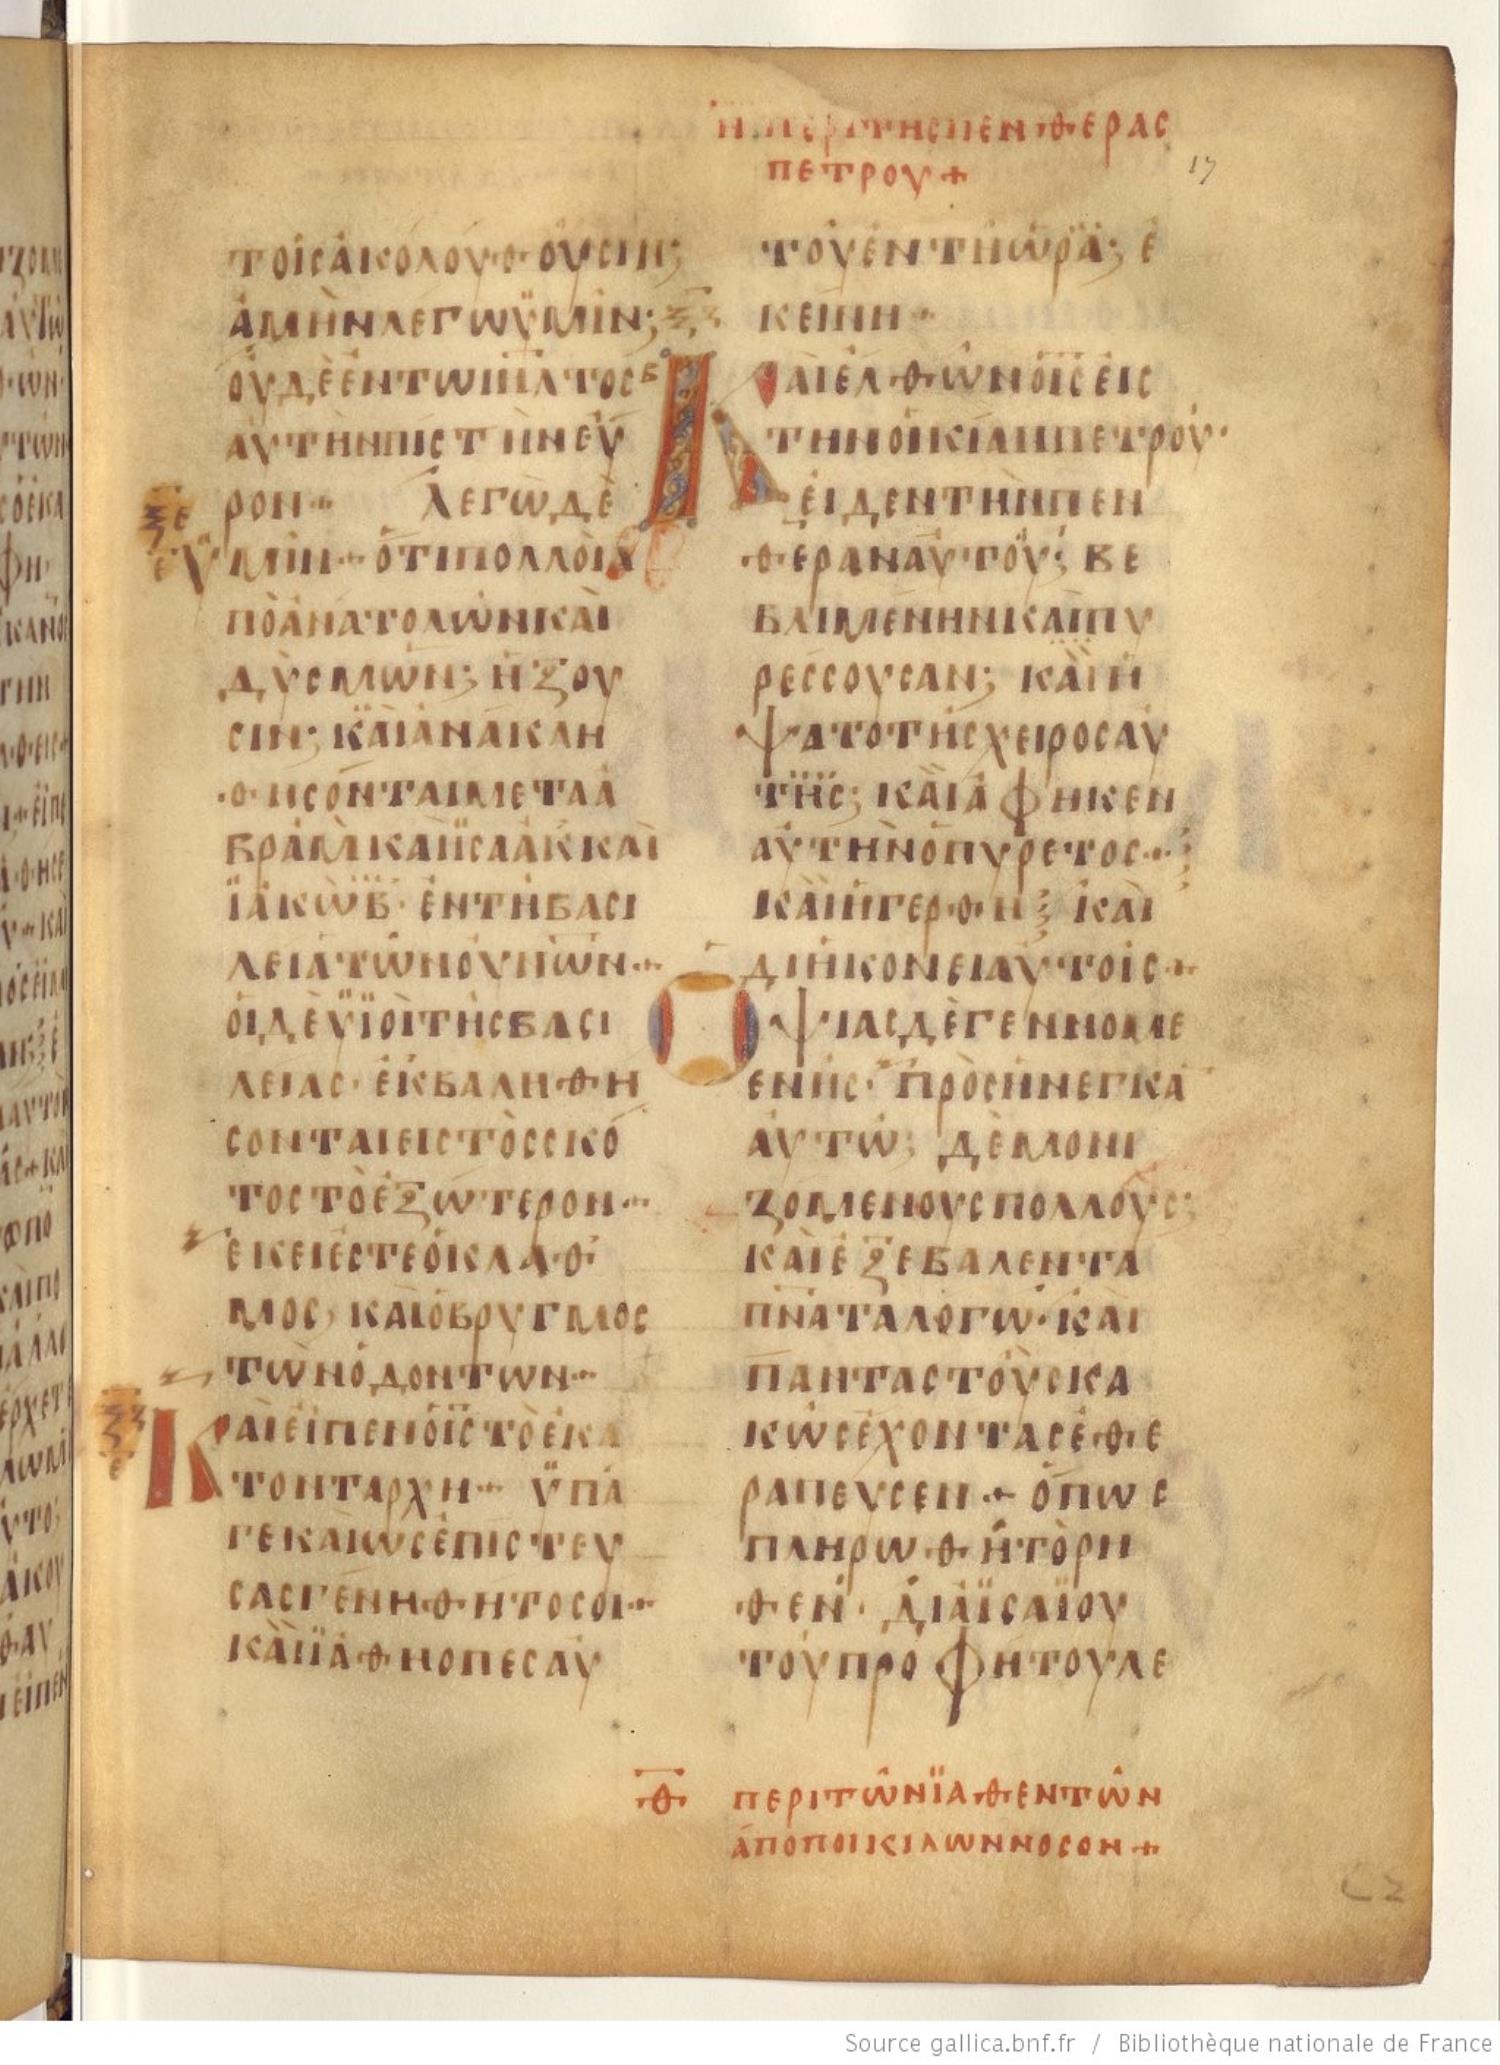 Η ΠΕΡΙ ΤΗΣ ΠΕΝΘΕΡΑΣ
ΠΕΤΡΟΥ+
17
ΤΟΙϹΑΚΟΛΟΥΘΟΥϹΙΝ;
ΑΜΗΝΛΕΓΩΫΜΙΝ;
ΟΥΔΕΕΝΤΩΙΗΛΤΟϹ
ΑΥΤΗΝΠΙϹΤΙΝΕΥ
ΡΟΝ·· ΛΕΓΩΔΕ
ΫΜΙΝ·· ΟΤΙΠΟΛΛΟΙΑ
ΠΟΑΝΑΤΟΛΩΝΚΑΙ
ΔΥϹΜΩΝ; ΗΞΟΥ
ϹΙΝ; ΚΑΙΑΝΑΚΛΗ
ΘΗϹΟΝΤΑΙΜΕΤΑΑ
ΒΡΑΑΜΚΑΙΪϹΑΑΚΚΑΙ
ΪΑΚΩΒ· ΕΝΤΗΒΑϹΙ
ΛΕΙΑΤΩΝΟΥΝΩΝ·+
ΟΙΔΕΫΪΟΙΤΗϹΒΑϹΙ
ΛΕΙΑϹ· ΕΚΒΑΛΗΘΗ
ϹΟΝΤΑΙΕΙϹΤΟϹϹΚΟ
ΤΟϹΤΟΕΞΩΤΕΡΟΝ··
ΕΚΕΙΕϹΤΕΟΚΛΑΘ
ΜΟϹ, ΚΑΙΟΒΡΥΓΜΟϹ
ΤΩΝΟΔΟΝΤΩΝ··
ΚΑΙΕΙΠΕΝΟΙϹΤΟΕΚΑ
ΤΟΝΤΑΡΧΗ·· ΫΠΑ
ΓΕΚΑΙΩϹΕΠΙϹΤΕΥ
ϹΑϹΓΕΝΗΘΗΤΟϹΟΙ··
ΚΑΙΪΑΘΗΟΠΕϹΑΥ
ΤΟΥΕΝΤΗΩΡΑ; Ε
ΚΕΙΝΗ··
ΚΑΙΕΛΘΩΝΟΙϹΕΙϹ
ΤΗΝΟΙΚΙΑΝΠΕΤΡΟΥ·
ΕΙΔΕΝΤΗΝΠΕΝ
ΘΕΡΑΝΑΥΤΟΥ; ΒΕ
ΒΛΙΜΕΝΗΝΚΑΙΠΥ
ΡΕϹϹΟΥϹΑΝ; ΚΑΙΗ
ΨΑΤΟΤΗϹΧΕΙΡΟϹΑΥ
ΤΗϹ; ΚΑΙΑΦΗΚΕΝ
ΑΥΤΗΝΟΠΥΡΕΤΟϹ··
ΚΑΙΗΓΕΡΘΗ; ΚΑΙ
ΔΙΗΚΟΝΕΙΑΥΤΟΙϹ·+
ΟΨΙΑϹΔΕΓΕΝΝΟΜΕ
ΕΝΗϹ· ΠΡΟϹΗΝΕΓΚΑ
ΑΥΤΩ; ΔΕΜΟΝΙ
ΖΟΜΕΝΟΥϹΠΟΛΛΟΥϹ;
ΚΑΙΕΞΕΒΑΛΕΝΤΑ
ΠΝΑΤΑΛΟΓΩ·ΚΑΙ
ΠΑΝΤΑϹΤΟΥϹΚΑ
ΚΩϹΕΧΟΝΤΑϹΕΘΕ
ΡΑΠΕΥϹΕΝ·+ ΟΠΩϹ
ΠΛΗΡΩΘΗΤΟΡΗ
ΘΕΝ· ΔΙΑΪϹΑΪΟΥ
ΤΟΥΠΡΟΦΗΤΟΥΛΕ
Θ ΠΕΡΙΤΩΝΪΑΘΕΝΤΩΝ
ΑΠΟΠΟΙΚΙΛΩΝΝΟϹΟΝ+
C2
Source gallica.bnf.fr / Bibliothèque nationale de France